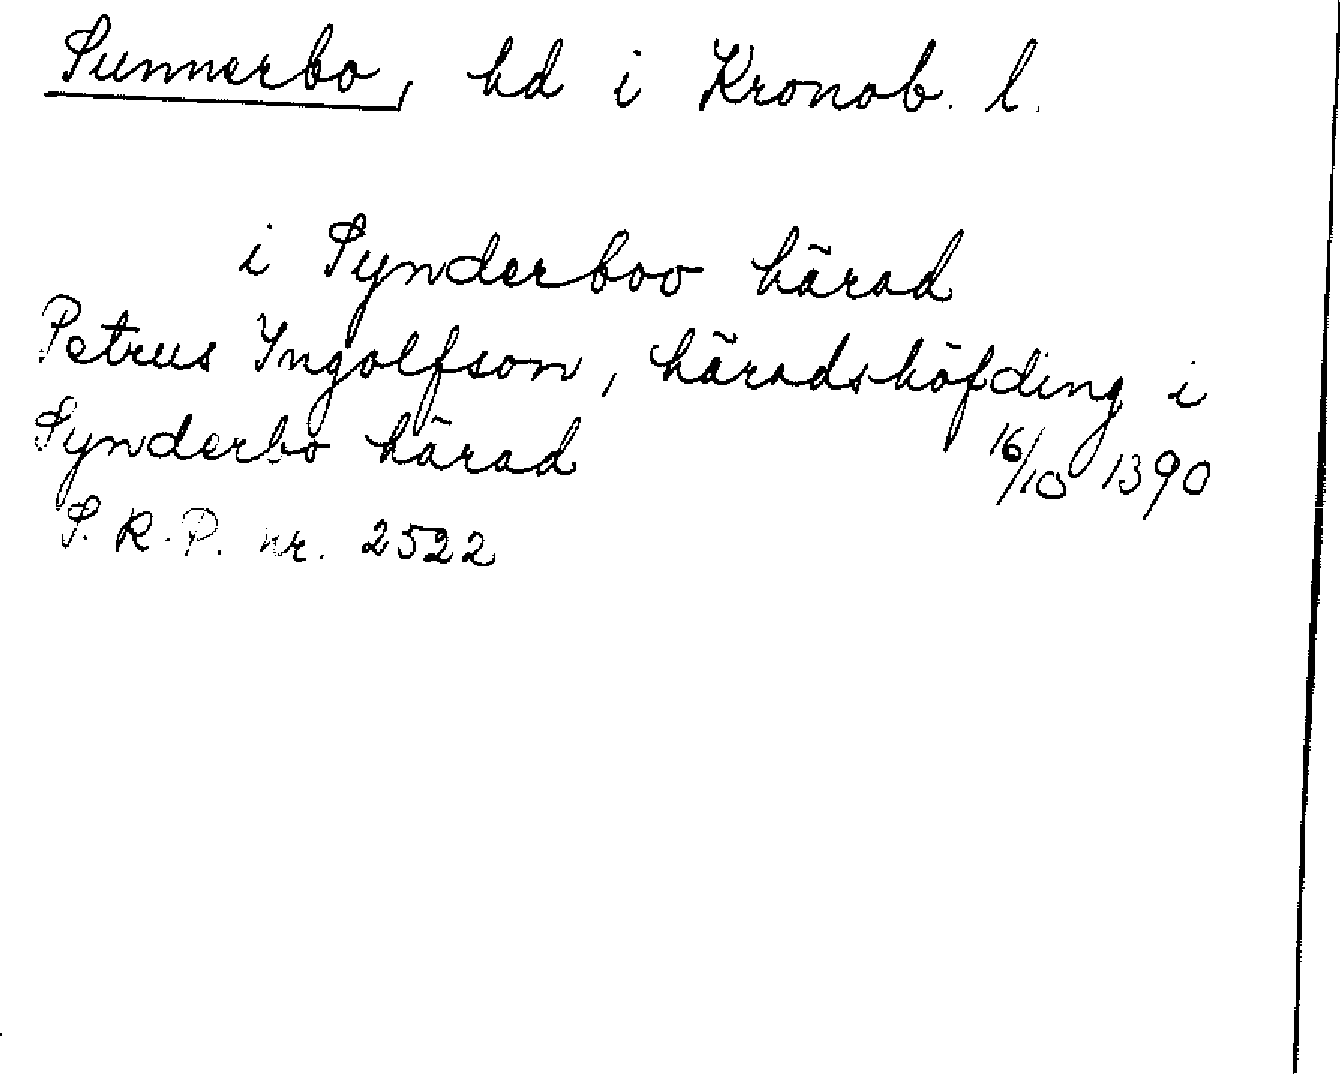 Sunnerbo, hd i Kronob. l.
i Synderboo härad
Petrus Ingolfson, häradshöfding i
Synderbo härad 16/10 1390
S. R. P. nr. 2522